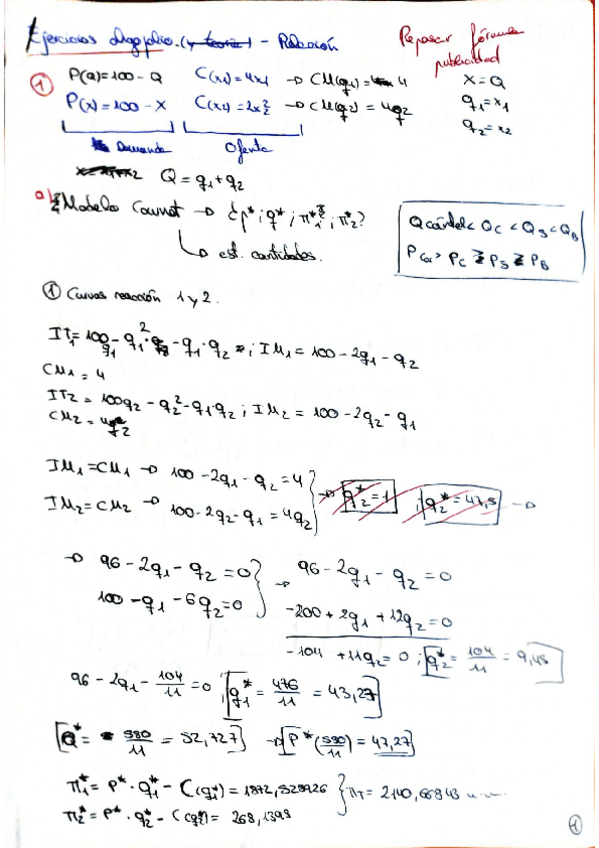 Ejercicios oligopolio. (y teoría) - Relación
Repasar fórmula
publicidad
① P(Q)=100-Q C(x1)=4x1 → CM(q1)= 4 X=Q
P(x)=100-X C(x2)=2x2² → CM(q2)=4q2 q1=x1
q2=x2
Demanda Oferta
Q=q1+q2
a) Modelo Cournot → ¿p*; q*; π1*; π2*?
↳ est. cantidades.
Qcártel< QC < QS < QB
PCar> PC ≥ PS ≥ PB
① Curvas reacción 1 y 2.
IT1=100q1-q1²-q1·q2; IM1=100-2q1-q2
CM1=4
IT2=100q2-q2²-q1·q2; IM2=100-2q2-q1
CM2=4q2
IM1=CM1 → 100-2q1-q2=4
IM2=CM2 → 100-2q2-q1=4q2 → q2*=1 ; q2*=47,5 →
→ 96-2q1-q2=0 → 96-2q1-q2=0
100-q1-6q2=0 -200+2q1+12q2=0
-104+11q2=0; q2*=104/11=9,45
96-2q1-104/11=0; q1*=476/11=43,27
Q*=580/11=52,727 → P*(580/11)=47,27
π1*=P*·q1*-C(q1*)=1872,528926
π2*=P*·q2*-C(q2*)=268,1398 } πT=2140,66843 u.m.
①